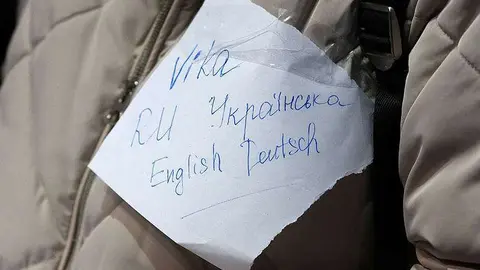 Vika
RU Українська
English Deutsch